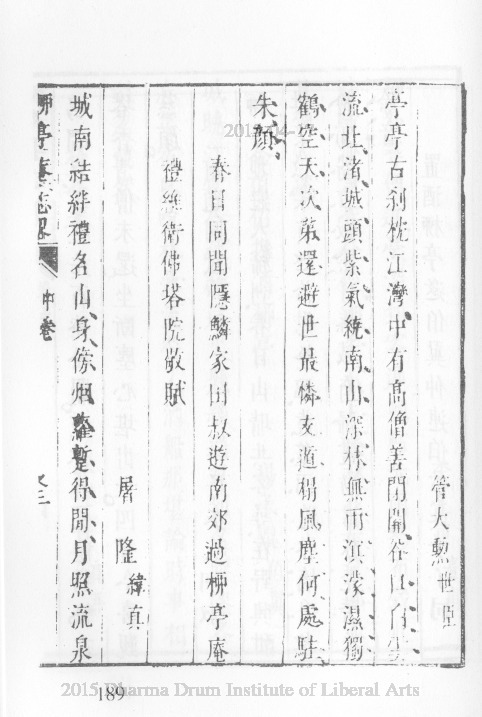 管大勲世臣
亭亭古刹枕江灣中有高僧善閉關谷口白雲
流北渚城頭紫氣繞南山深林無雨溟濛濕獨
鶴空天次第還避世最憐支遁稱風塵何處駐
朱顏
春日同聞隱鱗家田叔遊南郊過柳亭庵
禮維衛佛塔院敬賦
屠隆緯真
城南結絆禮名山身傍烟蘿暫得閒月照流泉
柳亭庵志畧
中卷
189
2015 Dharma Drum Institute of Liberal Arts